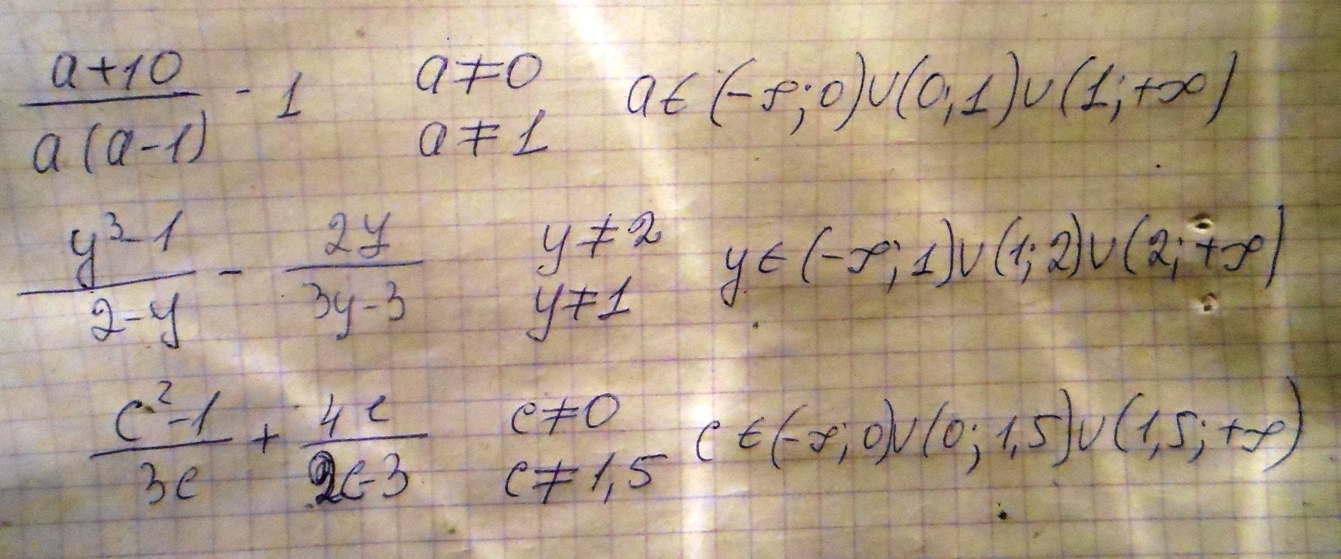 (a+10)/(a(a-1)) - 1   a≠0   a≠1   a∈(-∞;0)∪(0;1)∪(1;+∞)
(y³-1)/(2-y) - 2y/(3y-3)   y≠2   y≠1   y∈(-∞;1)∪(1;2)∪(2;+∞)
(c²-1)/(3c) + 4c/(2c-3)   c≠0   c≠1,5   c∈(-∞;0)∪(0;1,5)∪(1,5;+∞)